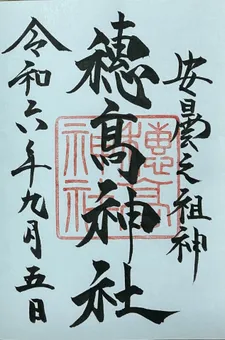 安曇之祖神
穂髙神社
令和六年九月五日
穂高神社